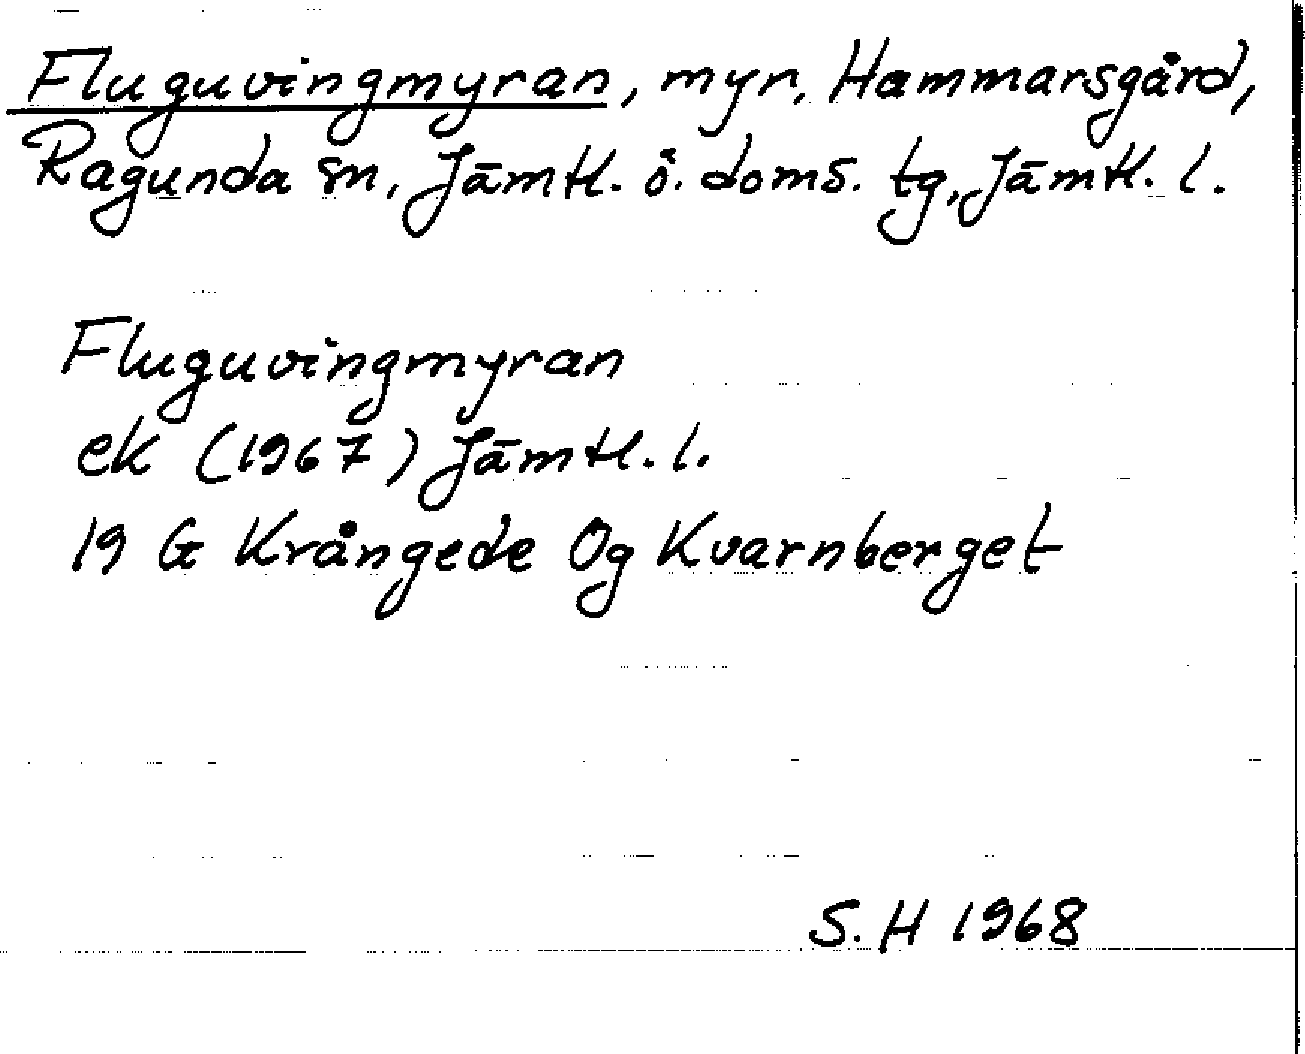 Fluguvingmyran, myr, Hammarsgård,
Ragunda sn, Jämtl. ö. doms. tg, Jämtl. l.
Fluguvingmyran
ek (1967) Jämtl. l.
19 G Krångede 0g Kvarnberget
S.H 1968